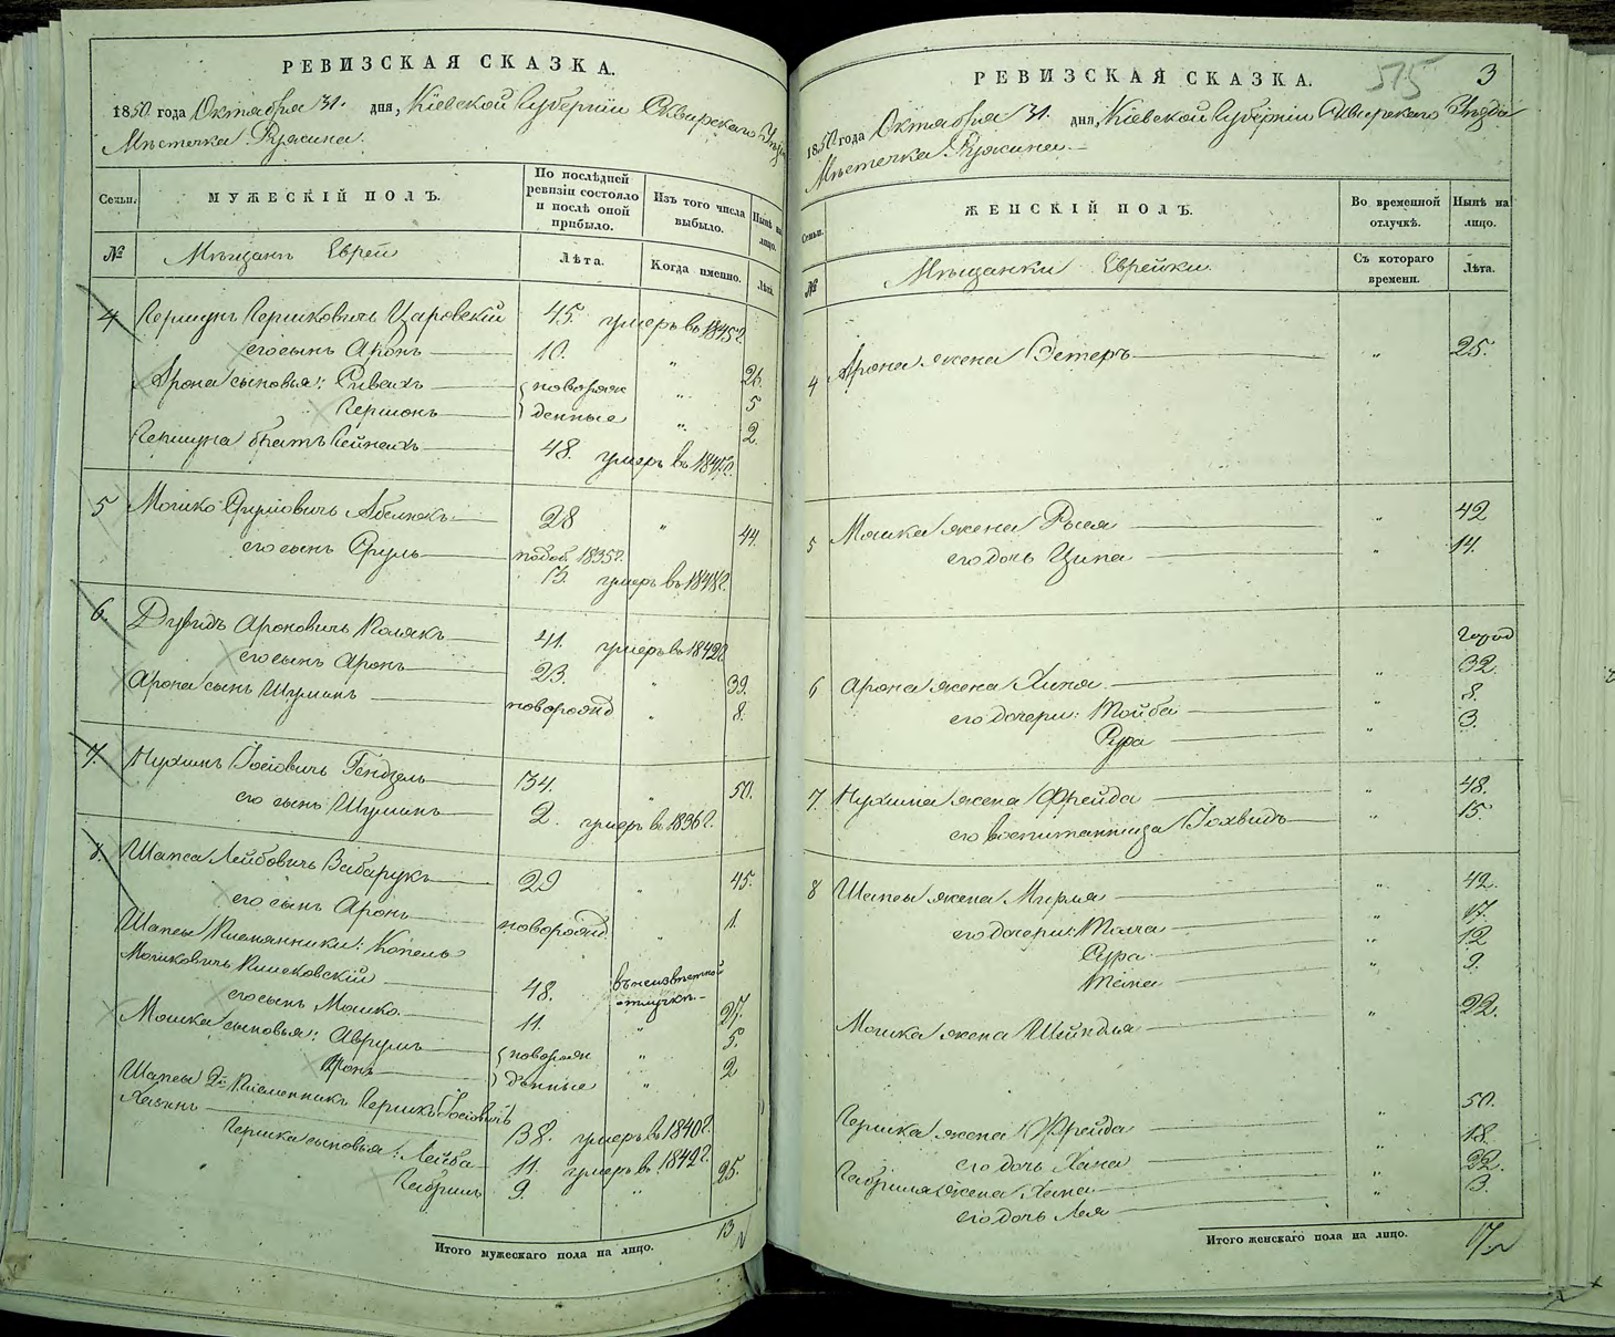 РЕВИЗСКАЯ СКАЗКА.
1850 года Октября 31. дня, Кіевской Губерніи Сквирскаго Уѣзда
Мѣстечка Ружина.
Семьи. МУЖЕСКІЙ ПОЛЪ. По послѣдней ревизіи состояло и послѣ оной прибыло. Изъ того числа выбыло. Нынѣ на лицо.
№ Мѣщанъ Евреи Лѣта. Когда именно. Лѣта.
4 Гершунъ Гершковичъ Царовскій 45. умеръ въ 1845 г.
его сынъ Аронъ 10. " 26.
Арона сыновья: { новорож " 5
Гершонъ } денные " 2.
Гершуна братъ 48. умеръ въ
5 Мошко Сруліовичъ 28 " 44.
его сынъ Сруль 1835 г.
13. умеръ въ 1848 г.
6. Дувидъ Ароновичъ Полякъ 41. умеръ въ 1842 г.
его сынъ Аронъ 23. " 39.
Арона сынъ Шулимъ новорожд " 8.
7. Нухимъ Іосіовичъ Гендзель 34. " 50.
его сынъ Шулимъ 2. умеръ въ 1836 г.
8. Шапса Лейбовичъ Бабарукъ 29 " 45.
его сынъ Аронъ новорожд. " 1.
Шапсы Племянники: Копель
Мошковичъ 48. въ неизвѣстной отлучкѣ.
его сынъ Мошко. 11. " 27.
Мошка сыновья: Аврумъ { новорож " 5.
Аронъ } денные " 2
Шапсы 2й Племенникъ Гершко Іосіовичъ
38. умеръ въ 1840 г.
Гершка сыновья: Лейба 11. умеръ въ 1842 г.
Габриль 9. " 25.
Итого мужескаго пола на лицо. 13
575 3
РЕВИЗСКАЯ СКАЗКА.
1850 года Октября 31. дня, Кіевской Губерніи Сквирскаго Уѣзда
Мѣстечка Ружина.
Семьи. ЖЕНСКІЙ ПОЛЪ. Во временной отлучкѣ. Нынѣ на лицо.
№ Мѣщанки Еврейки. Съ котораго времени. Лѣта.
4 Арона жена Эстеръ " 25.
5 Мошка жена Рыся " 42
его дочь Ципа " 14.
6 Арона жена Хана " 32.
его дочери: Тойба " 8.
Сура " 3.
7. Нухима жена Фрейда " 48.
его воспитанница Іохвидъ " 15.
8 Шапсы жена Мирля " 42.
его дочери: " 17.
Сура " 12
" 9.
Мошка жена Шейндля " 22.
Гершка жена Фрейда " 50.
его дочь Хана " 18.
Габриля жена Хана " 22.
его дочь Лея " 3.
Итого женскаго пола на лицо. 17